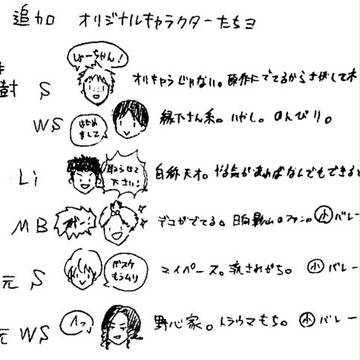 追加 オリジナルキャラクターたちヨ
しょーちゃん!
樹 S オリキャラじゃない。原作にでてるからさがしてネ
WS はじめまして 縁下さん系。いやし。のんびり。
Li 取らせて下さい! 自称天才。やる気があればなんでもできる
MB ガーン! デコがでてる。日向影山のファン。小バレー
元 S バスケもうムリ マイペース。流されがち。小バレー
元 WS ヘッ 野心家。トラウマもち。小バレー